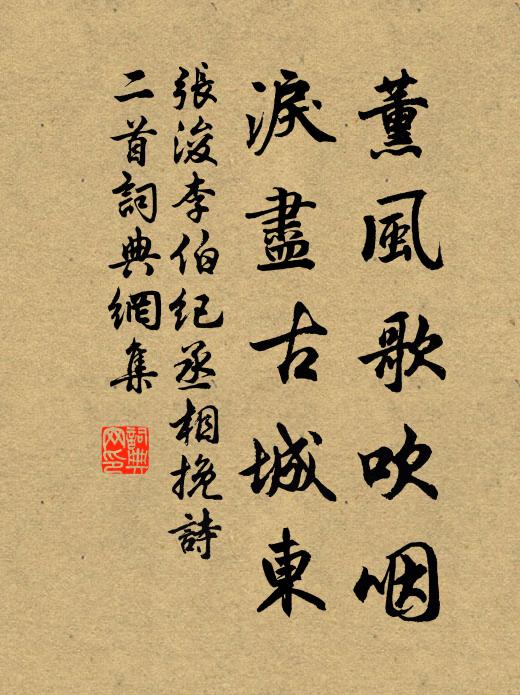 薰風歌吹咽
淚盡古城東
張浚李伯紀丞相挽詩
二首詞典網集
詞典
網印